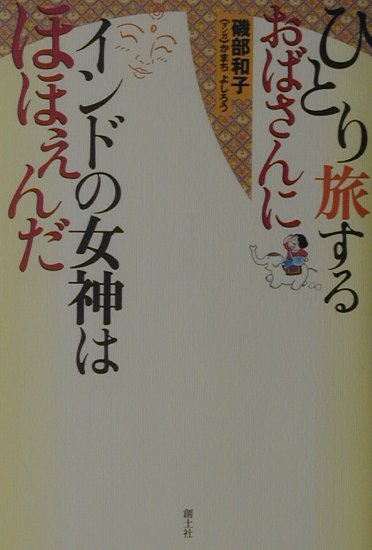 ひとり旅する
おばさんに
インドの女神は
ほほえんだ
磯部和子
〈マンガ〉かまち よしろう
創土社